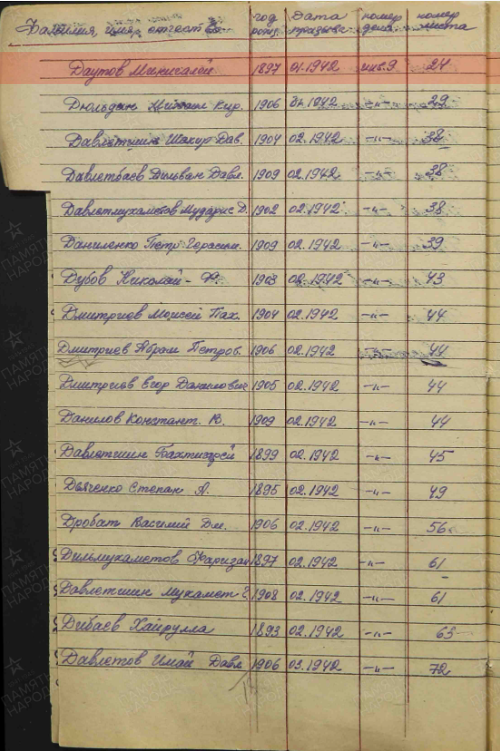 Фамилия имя отчество год рожд. Дата призыва номер дела номер листа
Даутов Минигалей 1897 01.1942 инв.9 24
Дюльдин 1906 01.1942 -"- 29
Давлетшин Шакир Дав. 1904 02.1942 -"- 38
Давлетбаев Дильван Давл. 1909 02.1942 -"- 38
Давлетмухаметов Мударис Д. 1902 02.1942 -"- 38
Даниленко Петр Герасим. 1909 02.1942 -"- 39
Дубов Николай Ф. 1903 02.1942 -"- 43
Дмитриев Моисей Пах. 1904 02.1942 -"- 44
Дмитриев Абрам Петров. 1906 02.1942 -"- 44
Дмитриев Егор Данилович 1905 02.1942 -"- 44
Данилов Константин В. 1909 02.1942 -"- 44
Давлетшин Бахтигарей 1899 02.1942 -"- 45
Дьяченко Степан А. 1895 02.1942 -"- 49
Дробат Василий Дм. 1906 02.1942 -"- 56
Дильмухаметов Фаризан 1897 02.1942 -"- 61
Давлетшин Мухамет 1908 02.1942 -"- 61
Дибаев Хайрулла 1893 02.1942 -"- 63
Давлетов Имай Давл 1906 03.1942 -"- 72
ПАМЯТЬ НАРОДА